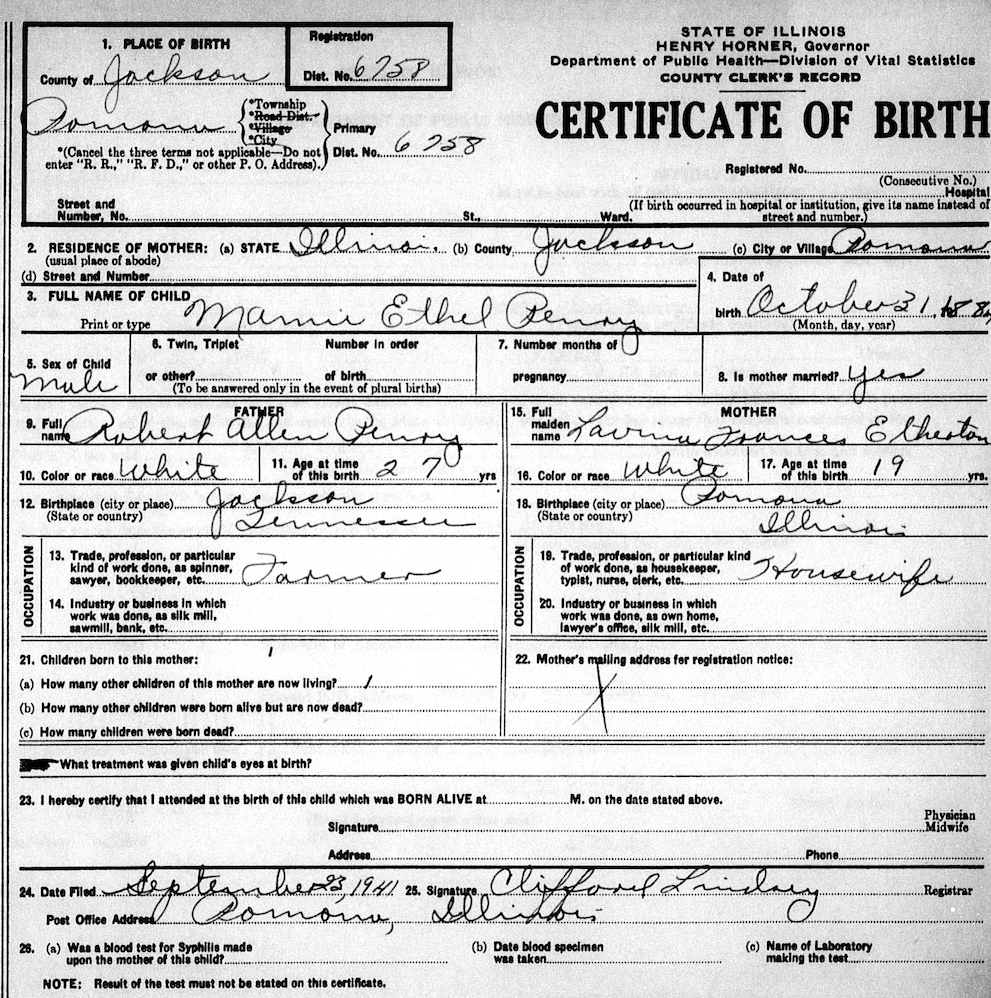 STATE OF ILLINOIS
HENRY HORNER, Governor
Department of Public Health—Division of Vital Statistics
COUNTY CLERK'S RECORD
CERTIFICATE OF BIRTH
Registered No.
(Consecutive No.)
Hospital
(If birth occurred in hospital or institution, give its name instead of
street and number.)
1. PLACE OF BIRTH
County of Jackson
Registration
Dist. No. 6758
Pomona
*Township
*Road Dist.
*Village
*City
Primary
Dist. No. 6758
*(Cancel the three terms not applicable—Do not
enter "R. R.," "R. F. D.," or other P. O. Address).
Street and
Number, No. St., Ward.
2. RESIDENCE OF MOTHER: (a) STATE Illinois. (b) County Jackson (c) City or Village Pomona
(usual place of abode)
(d) Street and Number
3. FULL NAME OF CHILD Mamie Ethel Penry
Print or type
4. Date of
birth October 31, 188
(Month, day, year)
5. Sex of Child
Male
6. Twin, Triplet Number in order
or other? of birth
(To be answered only in the event of plural births)
7. Number months of
pregnancy
8. Is mother married? Yes
FATHER
9. Full
name Robert Allen Penry
10. Color or race White
11. Age at time
of this birth 27 yrs
12. Birthplace (city or place) Jackson
(State or country) Tennessee
OCCUPATION
13. Trade, profession, or particular
kind of work done, as spinner,
sawyer, bookkeeper, etc. Farmer
14. Industry or business in which
work was done, as silk mill,
sawmill, bank, etc.
MOTHER
15. Full
maiden
name Laverna Frances Etherton
16. Color or race White
17. Age at time
of this birth 19 yrs.
18. Birthplace (city or place) Pomona
(State or country) Illinois
OCCUPATION
19. Trade, profession, or particular kind
of work done, as housekeeper,
typist, nurse, clerk, etc. Housewife
20. Industry or business in which
work was done, as own home,
lawyer's office, silk mill, etc.
21. Children born to this mother:
(a) How many other children of this mother are now living? 1
(b) How many other children were born alive but are now dead?
(c) How many children were born dead?
22. Mother's mailing address for registration notice:
X
What treatment was given child's eyes at birth?
23. I hereby certify that I attended at the birth of this child which was BORN ALIVE at M. on the date stated above.
Signature Physician
Midwife
Address Phone
24. Date Filed September 23, 1941 25. Signature Clifford Lindsey Registrar
Post Office Address Pomona, Illinois
26. (a) Was a blood test for Syphilis made
upon the mother of this child?
(b) Date blood specimen
was taken
(c) Name of Laboratory
making the test
NOTE: Result of the test must not be stated on this certificate.